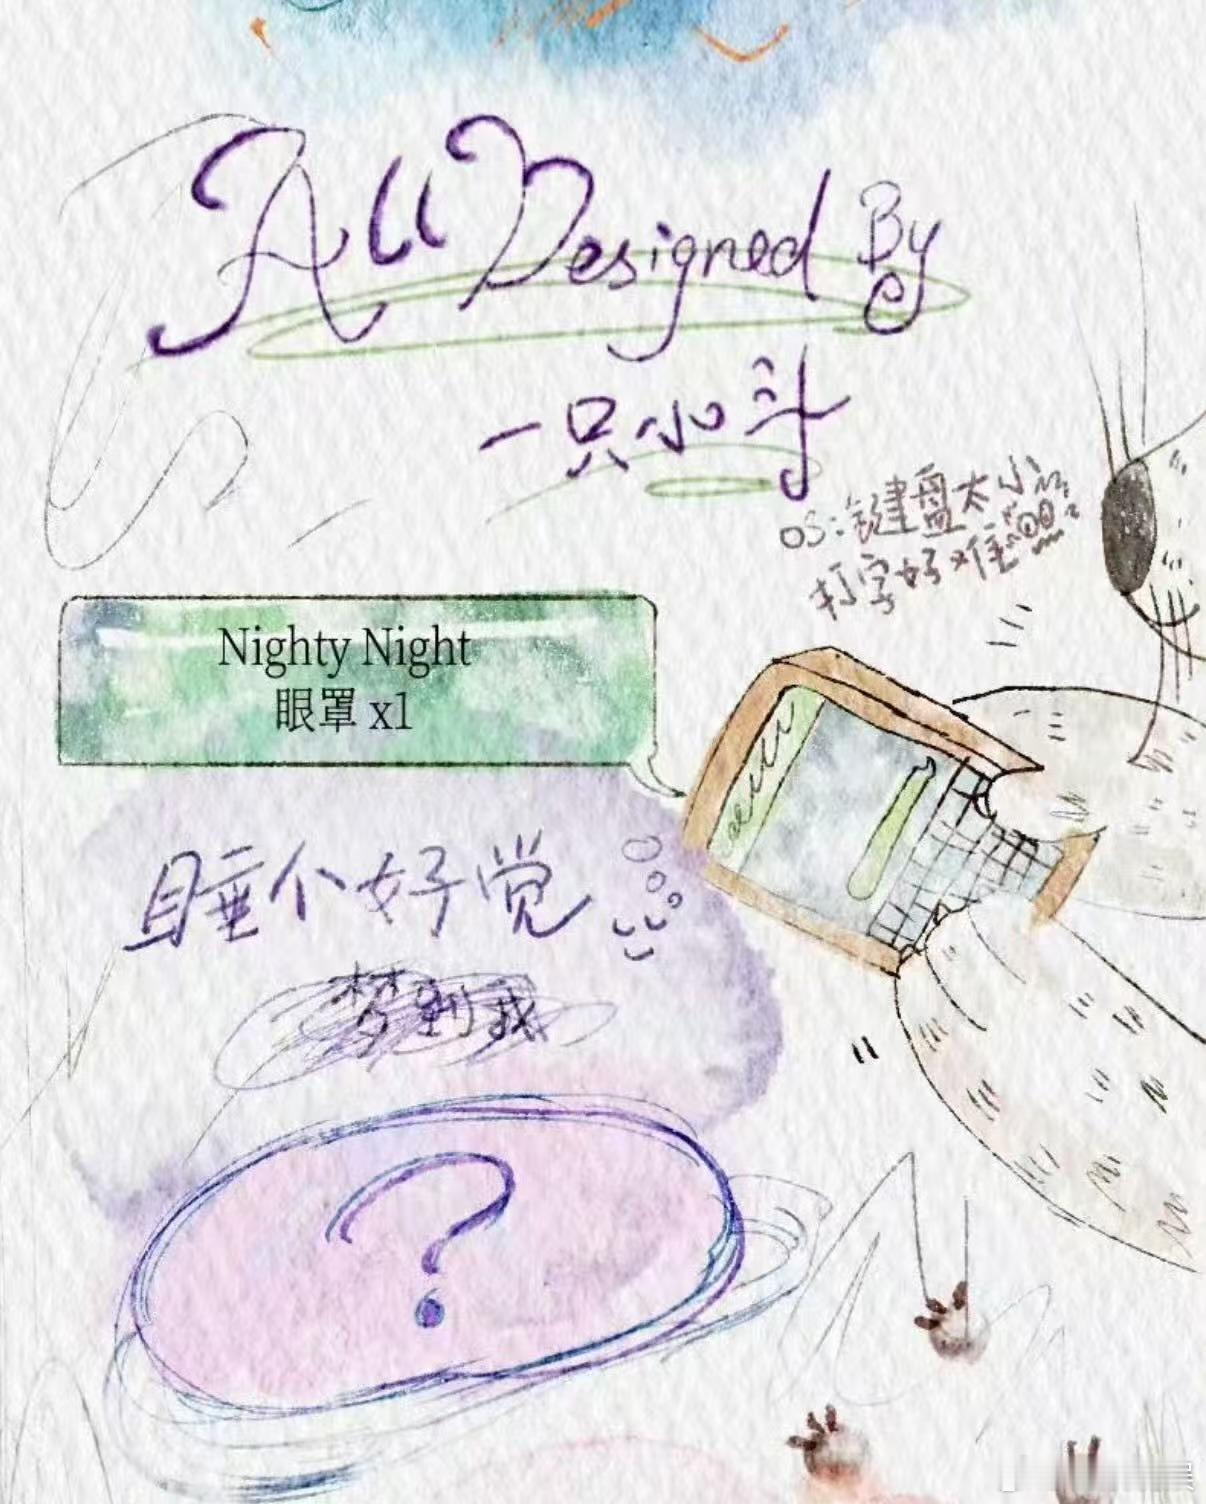 All Designed By
一只小斗
OS:键盘太小
打字好难
Nighty Night
眼罩 x1
睡个好觉
梦到我
?